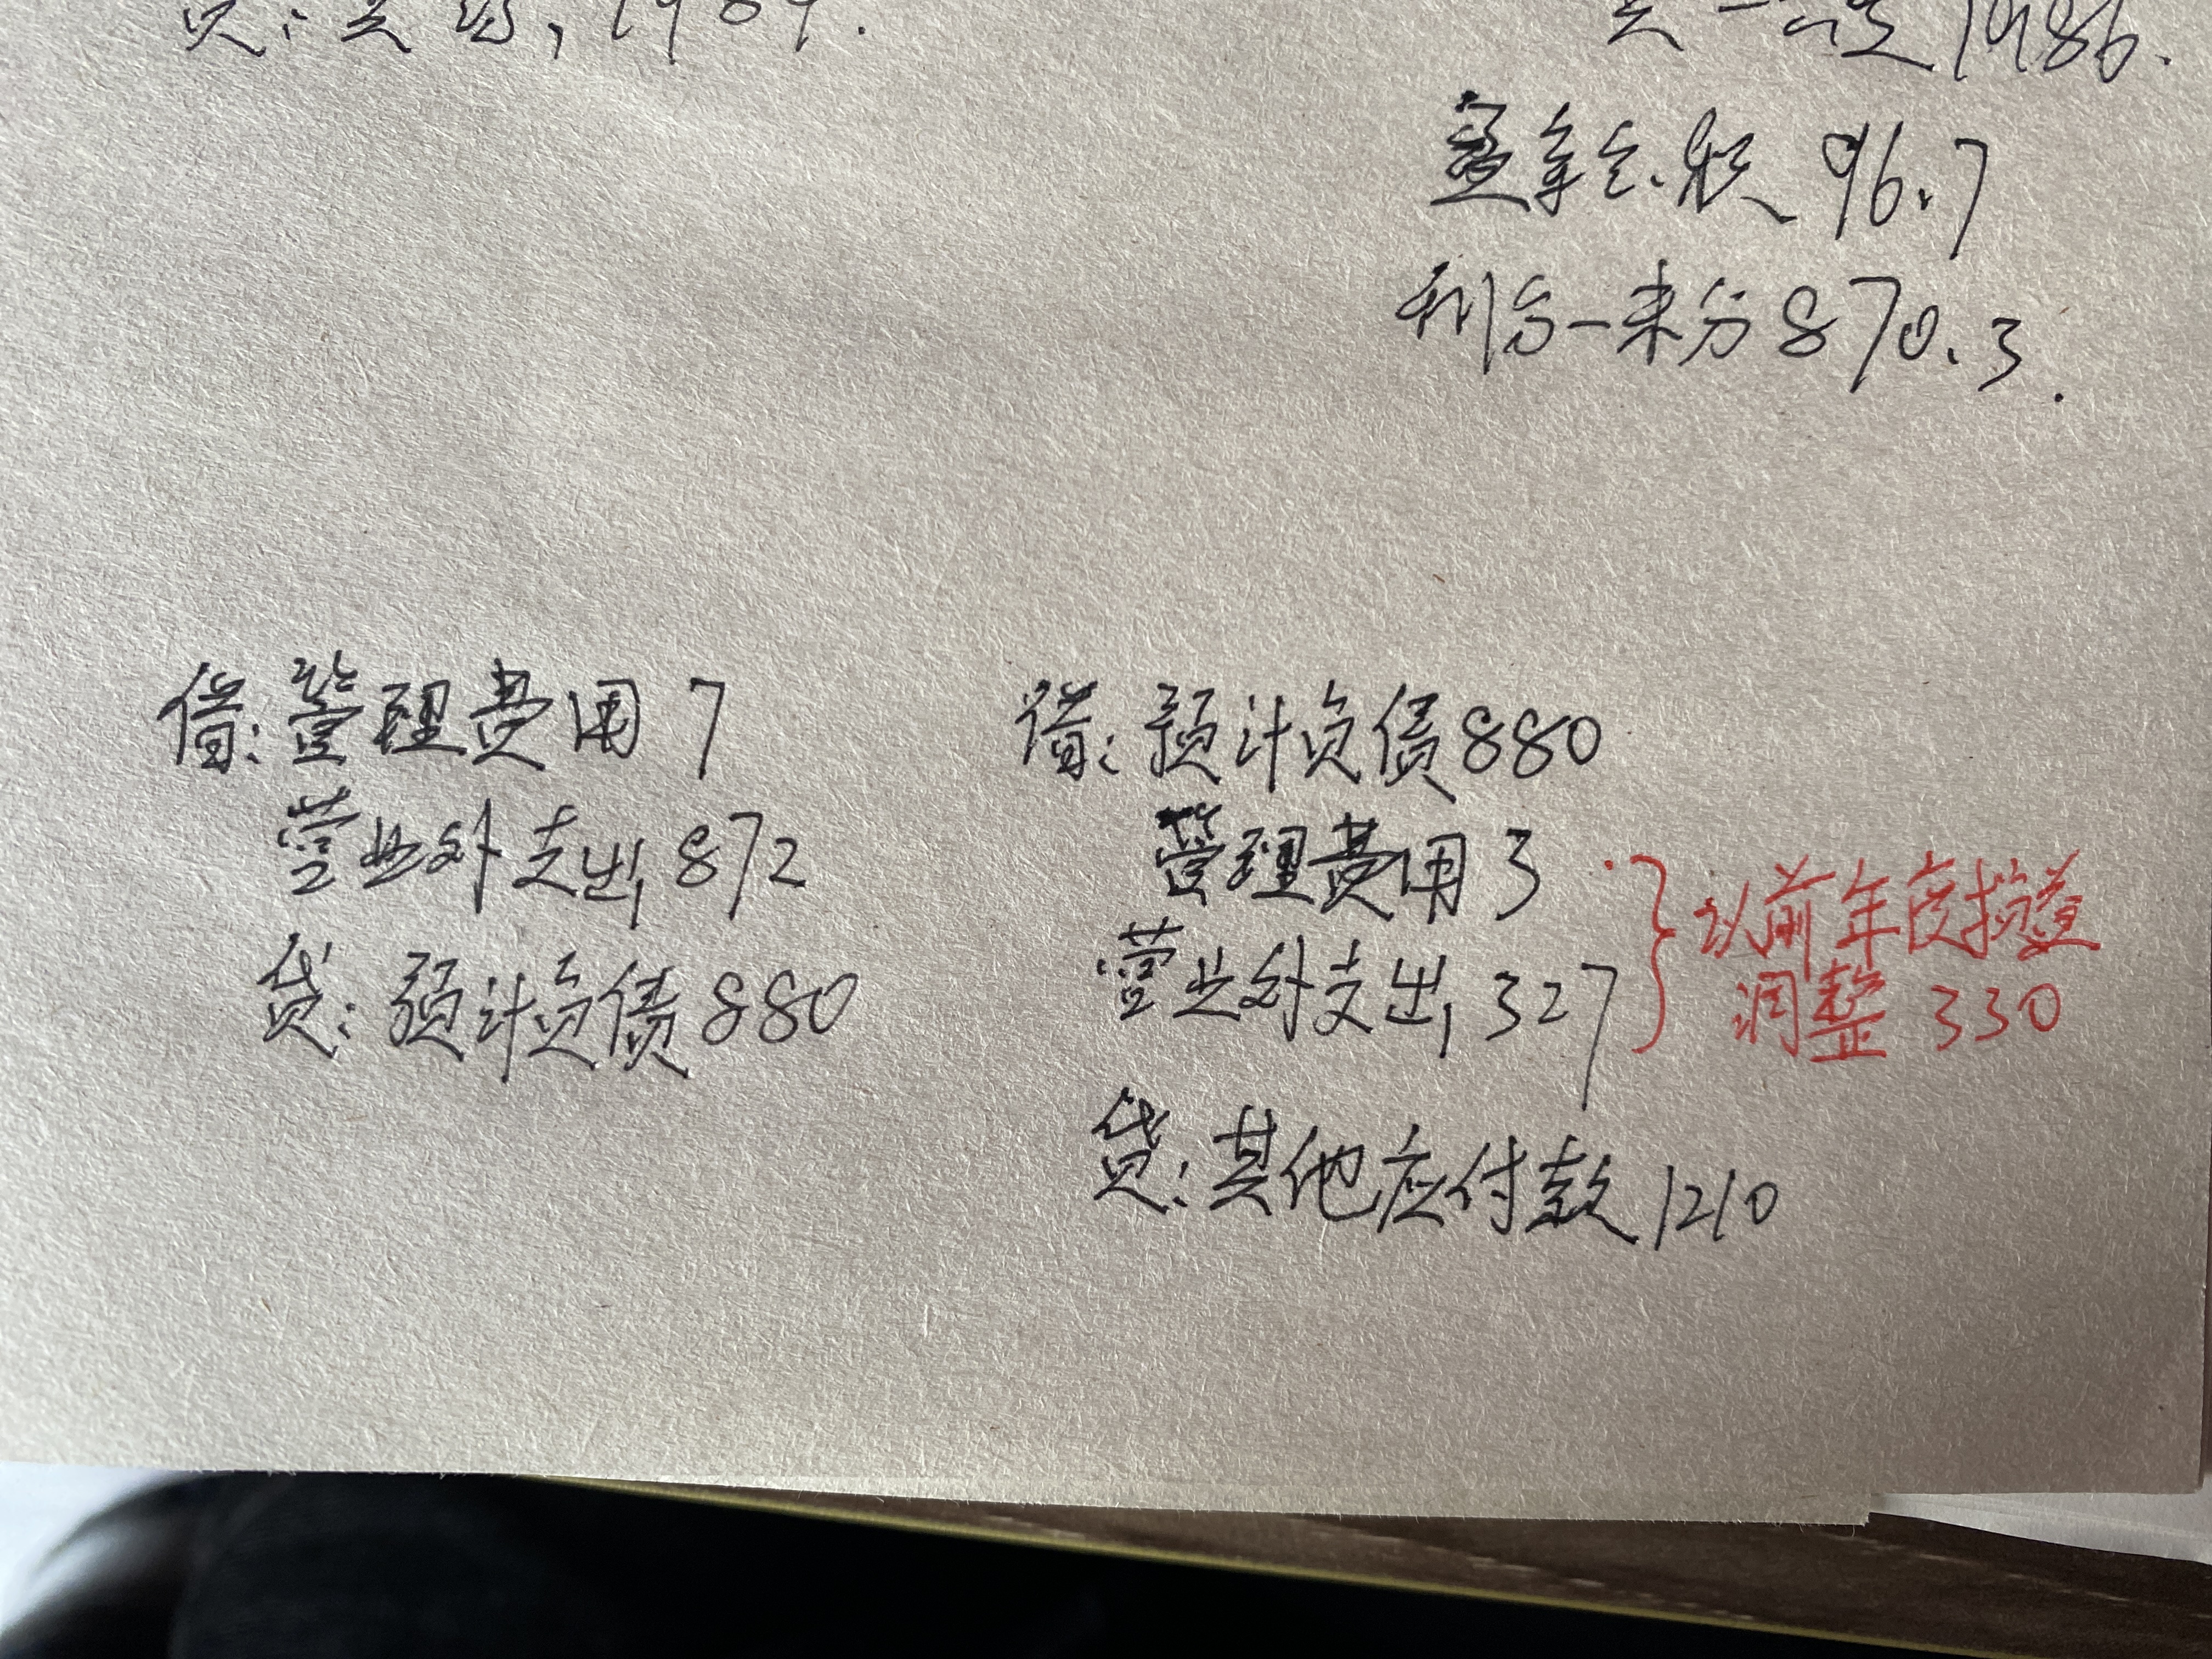 盈余公积 96.7
利润-未分 870.3.
借:管理费用 7
营业外支出 872
贷:预计负债 880
借:预计负债 880
管理费用 3
营业外支出 327
以前年度损益
调整 330
贷:其他应付款 1210